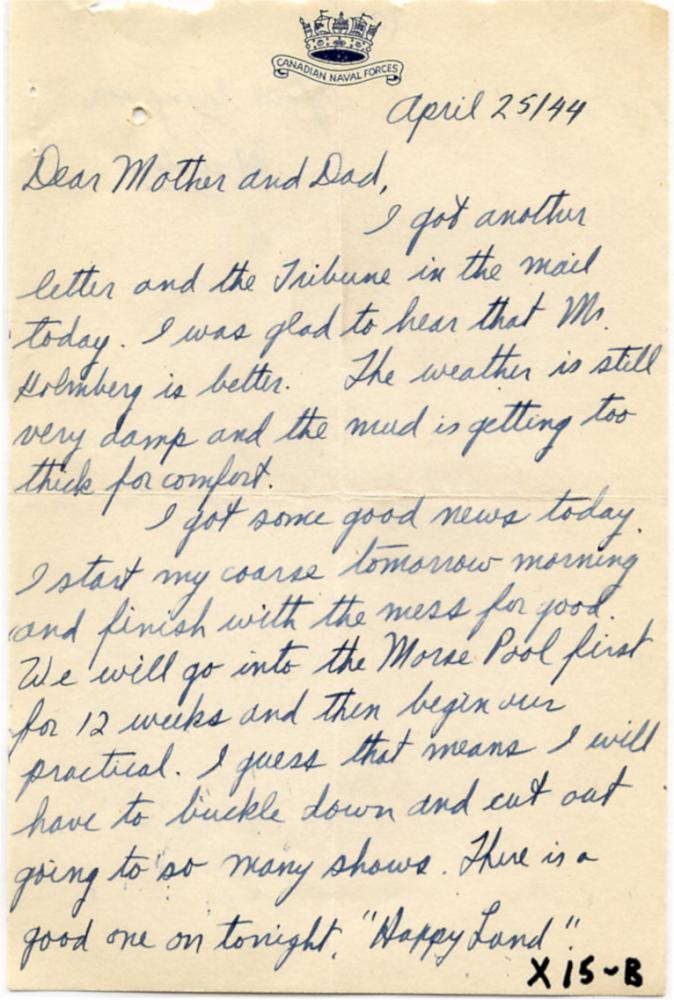 CANADIAN NAVAL FORCES
April 25/44
Dear Mother and Dad,
I got another
letter and the Tribune in the mail
today. I was glad to hear that Mr.
Holmberg is better. The weather is still
very damp and the mud is getting too
thick for comfort.
I got some good news today.
I start my coarse tomorrow morning
and finish with the mess for good.
We will go into the Morse Pool first
for 12 weeks and then begin our
practical. I guess that means I will
have to buckle down and cut out
going to so many shows. There is a
good one on tonight, "Happy Land".
X 15-B